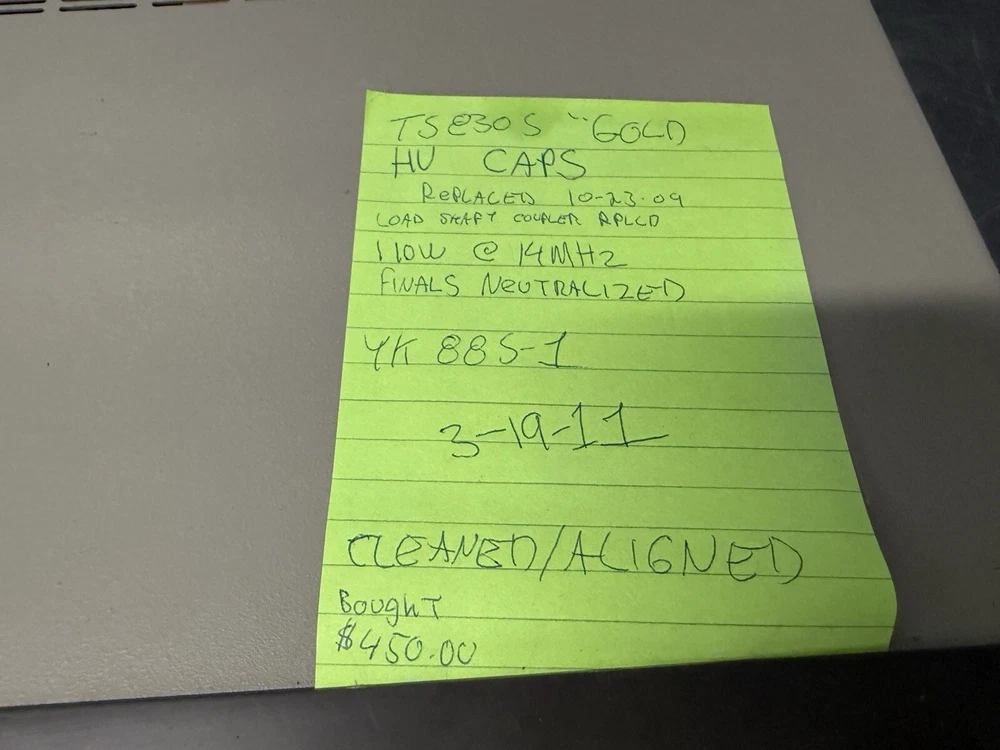 TS830S "GOLD
HV CAPS
REPLACED 10-23-09
LOAD SHAFT COUPLER RPLCD
110W @ 14MHz
FINALS NEUTRALIZED
YK 88S-1
3-19-11
CLEANED/ALIGNED
BOUGHT
$450.00